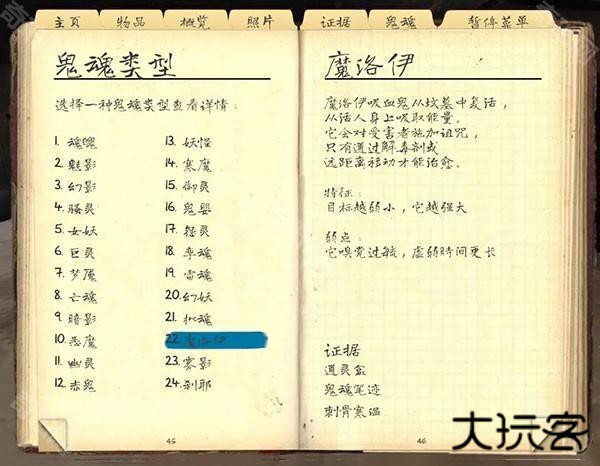 主页 物品 概览 照片 证据 鬼魂 暂停菜单
鬼魂类型
选择一种鬼魂类型查看详情:
1. 魂魄
2. 魅影
3. 幻影
4. 骚灵
5. 女妖
6. 巨灵
7. 梦魇
8. 亡魂
9. 暗影
10. 恶魔
11. 幽灵
12. 赤鬼
13. 妖怪
14. 寒魔
15. 御灵
16. 鬼婴
17. 怨灵
18. 孪魂
19. 雷魂
20. 幻妖
21. 拟魂
22. 魔洛伊
23. 雾影
24. 刹耶
45
魔洛伊
魔洛伊吸血鬼从坟墓中复活,
从活人身上吸取能量。
它会对受害者施加诅咒,
只有通过解毒剂或
远距离移动才能治愈。
特征:
目标越弱小,它越强大
弱点:
它嗅觉过敏,虚弱时间更长
证据
通灵盒
鬼魂笔迹
刺骨寒温
46
大玩客